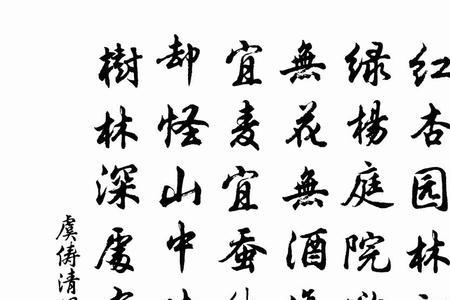 红杏园林
绿杨庭院
無花無酒
宜麦宜蚕
却怪山中
樹林深處
虞俦清